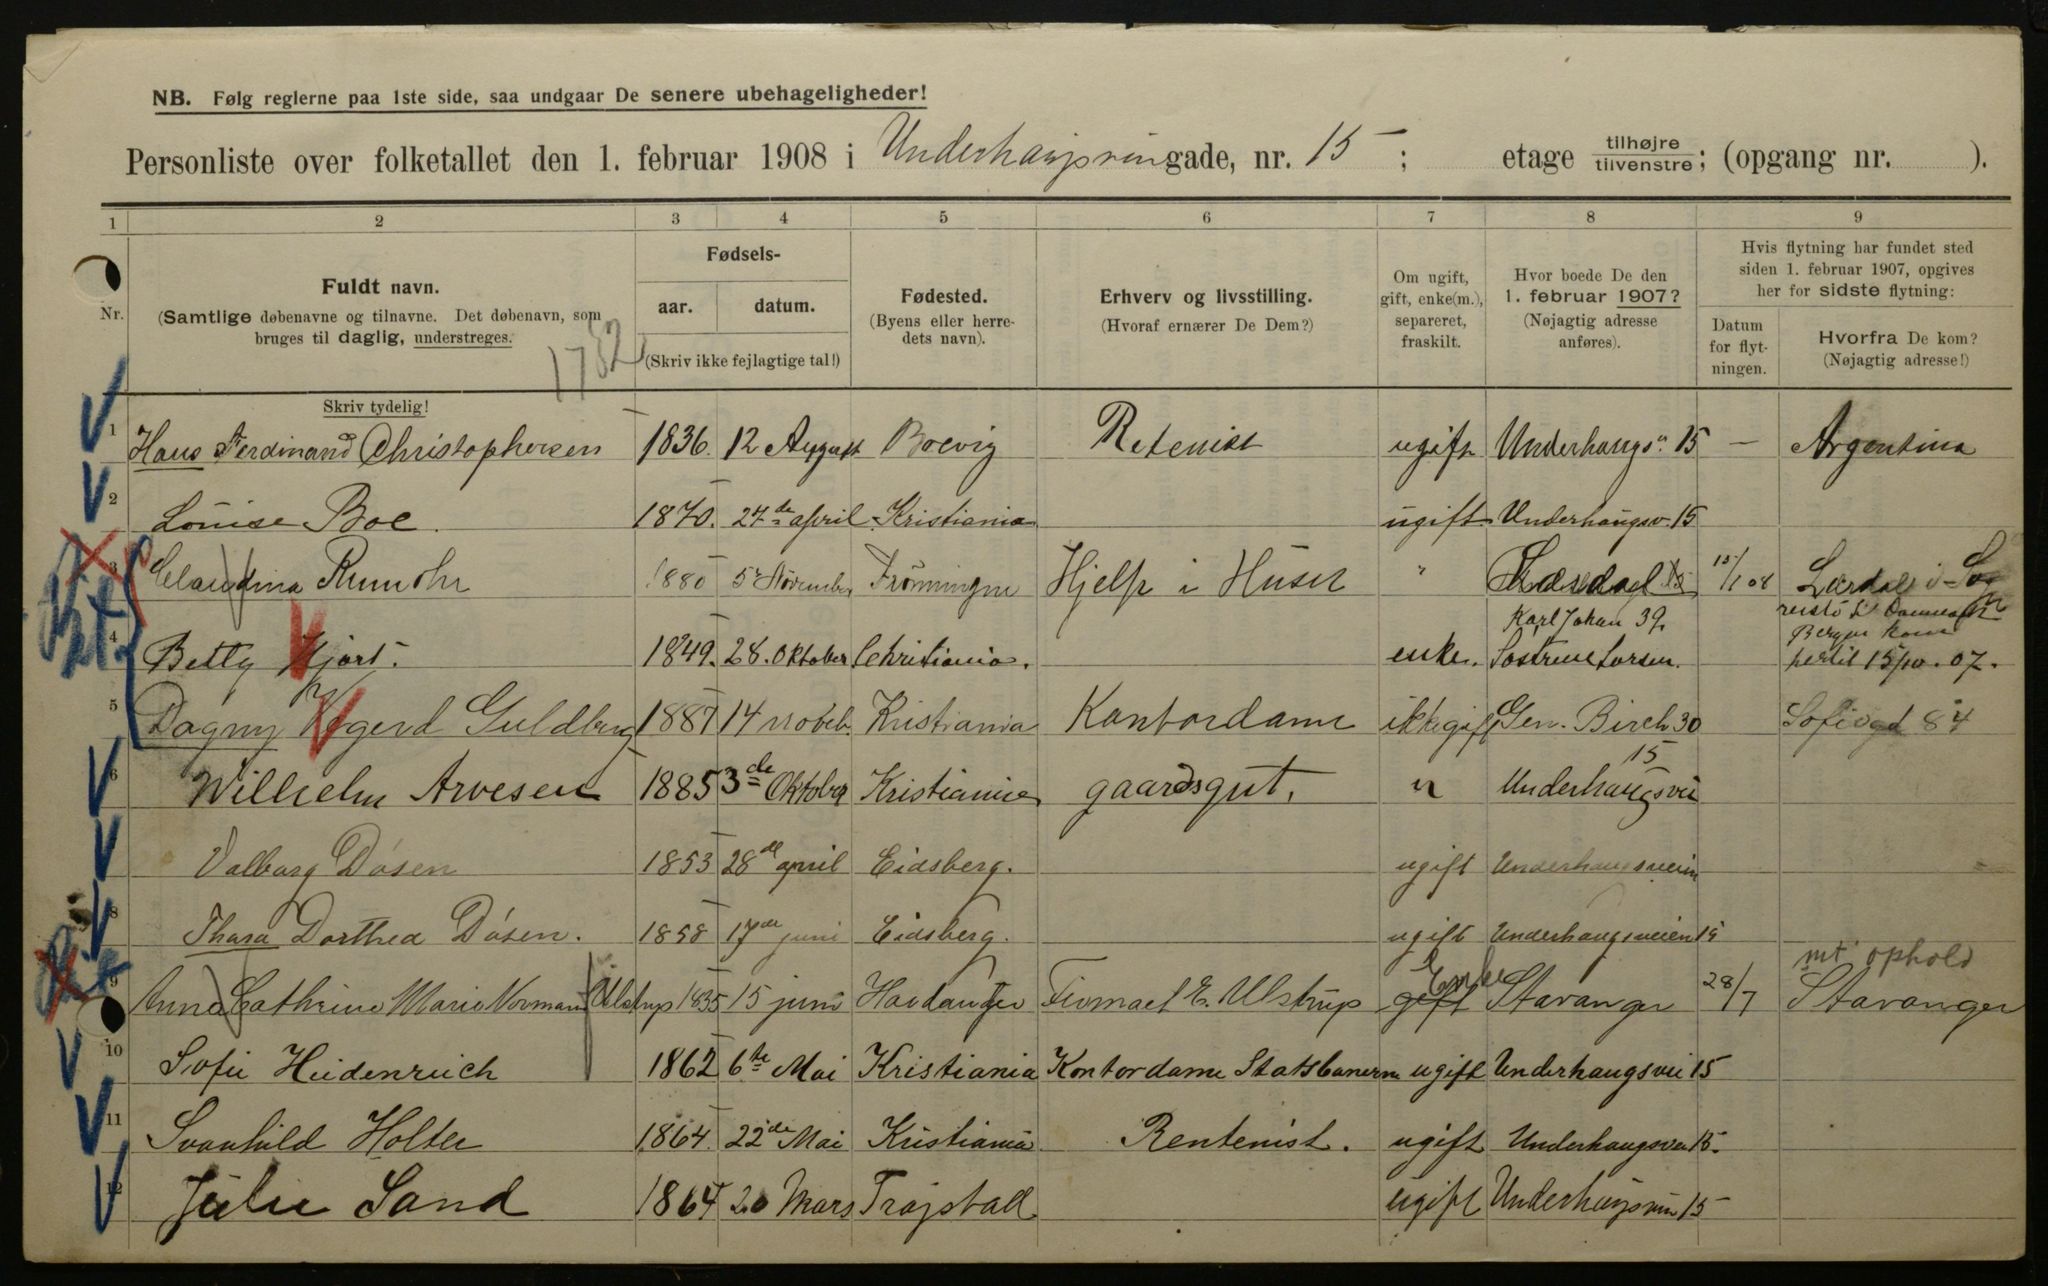 NB. Følg reglerne paa 1ste side, saa undgaar De senere ubehageligheder!
Personliste over folketallet den 1. februar 1908 i Underhaugsveiengade, nr. 15 ; etage tilhøjre tilvenstre ; (opgang nr. ).
1 2 3 4 5 6 7 8 9
Nr.
Fuldt navn.
(Samtlige døbenavne og tilnavne. Det døbenavn, som
bruges til daglig, understreges.
Skriv tydelig!
Fødsels-
aar. datum.
(Skriv ikke fejlagtige tal!)
Fødested.
(Byens eller herre-
dets navn).
Erhverv og livsstilling.
(Hvoraf ernærer De Dem?)
Om ugift,
gift, enke(m.),
separeret,
fraskilt.
Hvor boede De den
1. februar 1907?
(Nøjagtig adresse
anføres).
Hvis flytning har fundet sted
siden 1. februar 1907, opgives
her for sidste flytning:
Datum
for flyt-
ningen.
Hvorfra De kom?
(Nøjagtig adresse!)
1 Hans Ferdinand Christophersen 1836. 12 August Brevig Retenist ugift Underhaugsv. 15 — Argentina
2 Louise Boe. 1870. 27de april Kristiania ugift Underhaugsv. 15
3 Claudina Rumohr 1880 5 November Frønningen Hjelp i Huset " 15/1 08 Lærdal i Sogn
4 Betty Hjort. 1849. 28. Oktober Christiania. enke. Karl Johan 39. Søstrene Larsen. Bergen kom hertil 15/10. 07.
5 Dagny Guldberg 1887 14 Kristiania Kontordame ikke gift Gen. Birch 30 Sofiegd 84
6 Wilhelm Arvesen 1885 3de Oktober Kristiania gaardsgut. " Underhaugsvei 15
Valborg Dösen 1853 28de april Eidsberg. ugift Underhaugsveien
8 Thora Dorthea Dösen. 1858 17de juni Eidsberg. ugift Underhaugsveien 15
9 Anna Cathrine Marie Norman Ulstrup 1835 15 juni Hardanger E. Ulstrup gift Enke Stavanger 28/7 Stavanger
mt ophold
10 Sofie Heidenreich 1862 6te Mai Kristiania Kontordame Statsbanerne ugift Underhaugsvei 15
11 Svanhild Holter 1864. 22de Mai Kristiania Rentenist. ugift Underhaugsvei 15.
12 Julie Sand 1864 20 Mars Trøjstad ugift Underhaugsveien 15